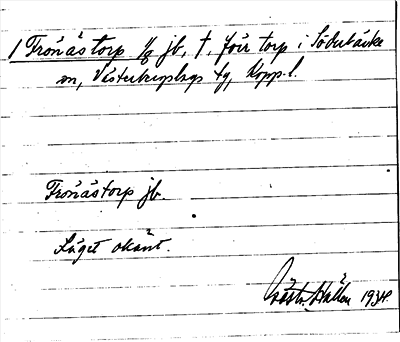 1 Tronästorp 1/8 jb, †, förr torp i Söderbärke
sn, Västerbergslags tg, Kopp. l.
Tronästorp jb.
Läget okänt.
Gösta Hallén 1934